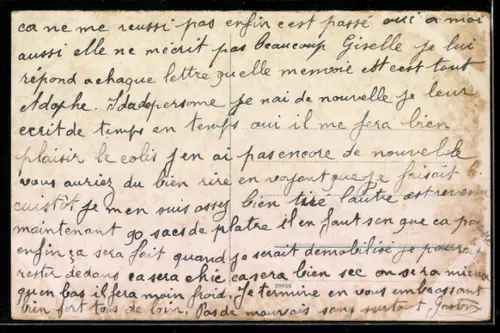 ca ne me reussi pas enfin c'est passé oui a moi
aussi elle ne mécrit pas beaucoup Giselle je lui
répond a chaque lettre quelle menvoie et cest tout
Adophe. Ida de personne je nai de nouvelle je leur
ecrit de temps en temps oui il me fera bien
plaisir le colis j'en ai pas encore de nouvelle
vous auriez du bien rire en voyant que je faisait
cuistôt je men suis assez bien tiré l'autre est revenu
maintenant 90 sacs de platre il en faut son que ca
enfin ça sera fait quand je serait démobilisé je pourrait
rester dedans ca sera chic ca sera bien sec on sera mieux
quen bas il fera moin froid. Je termine en vous embrassant
bien fort tous de loin. Pas de mauvais sang surtout Gaston